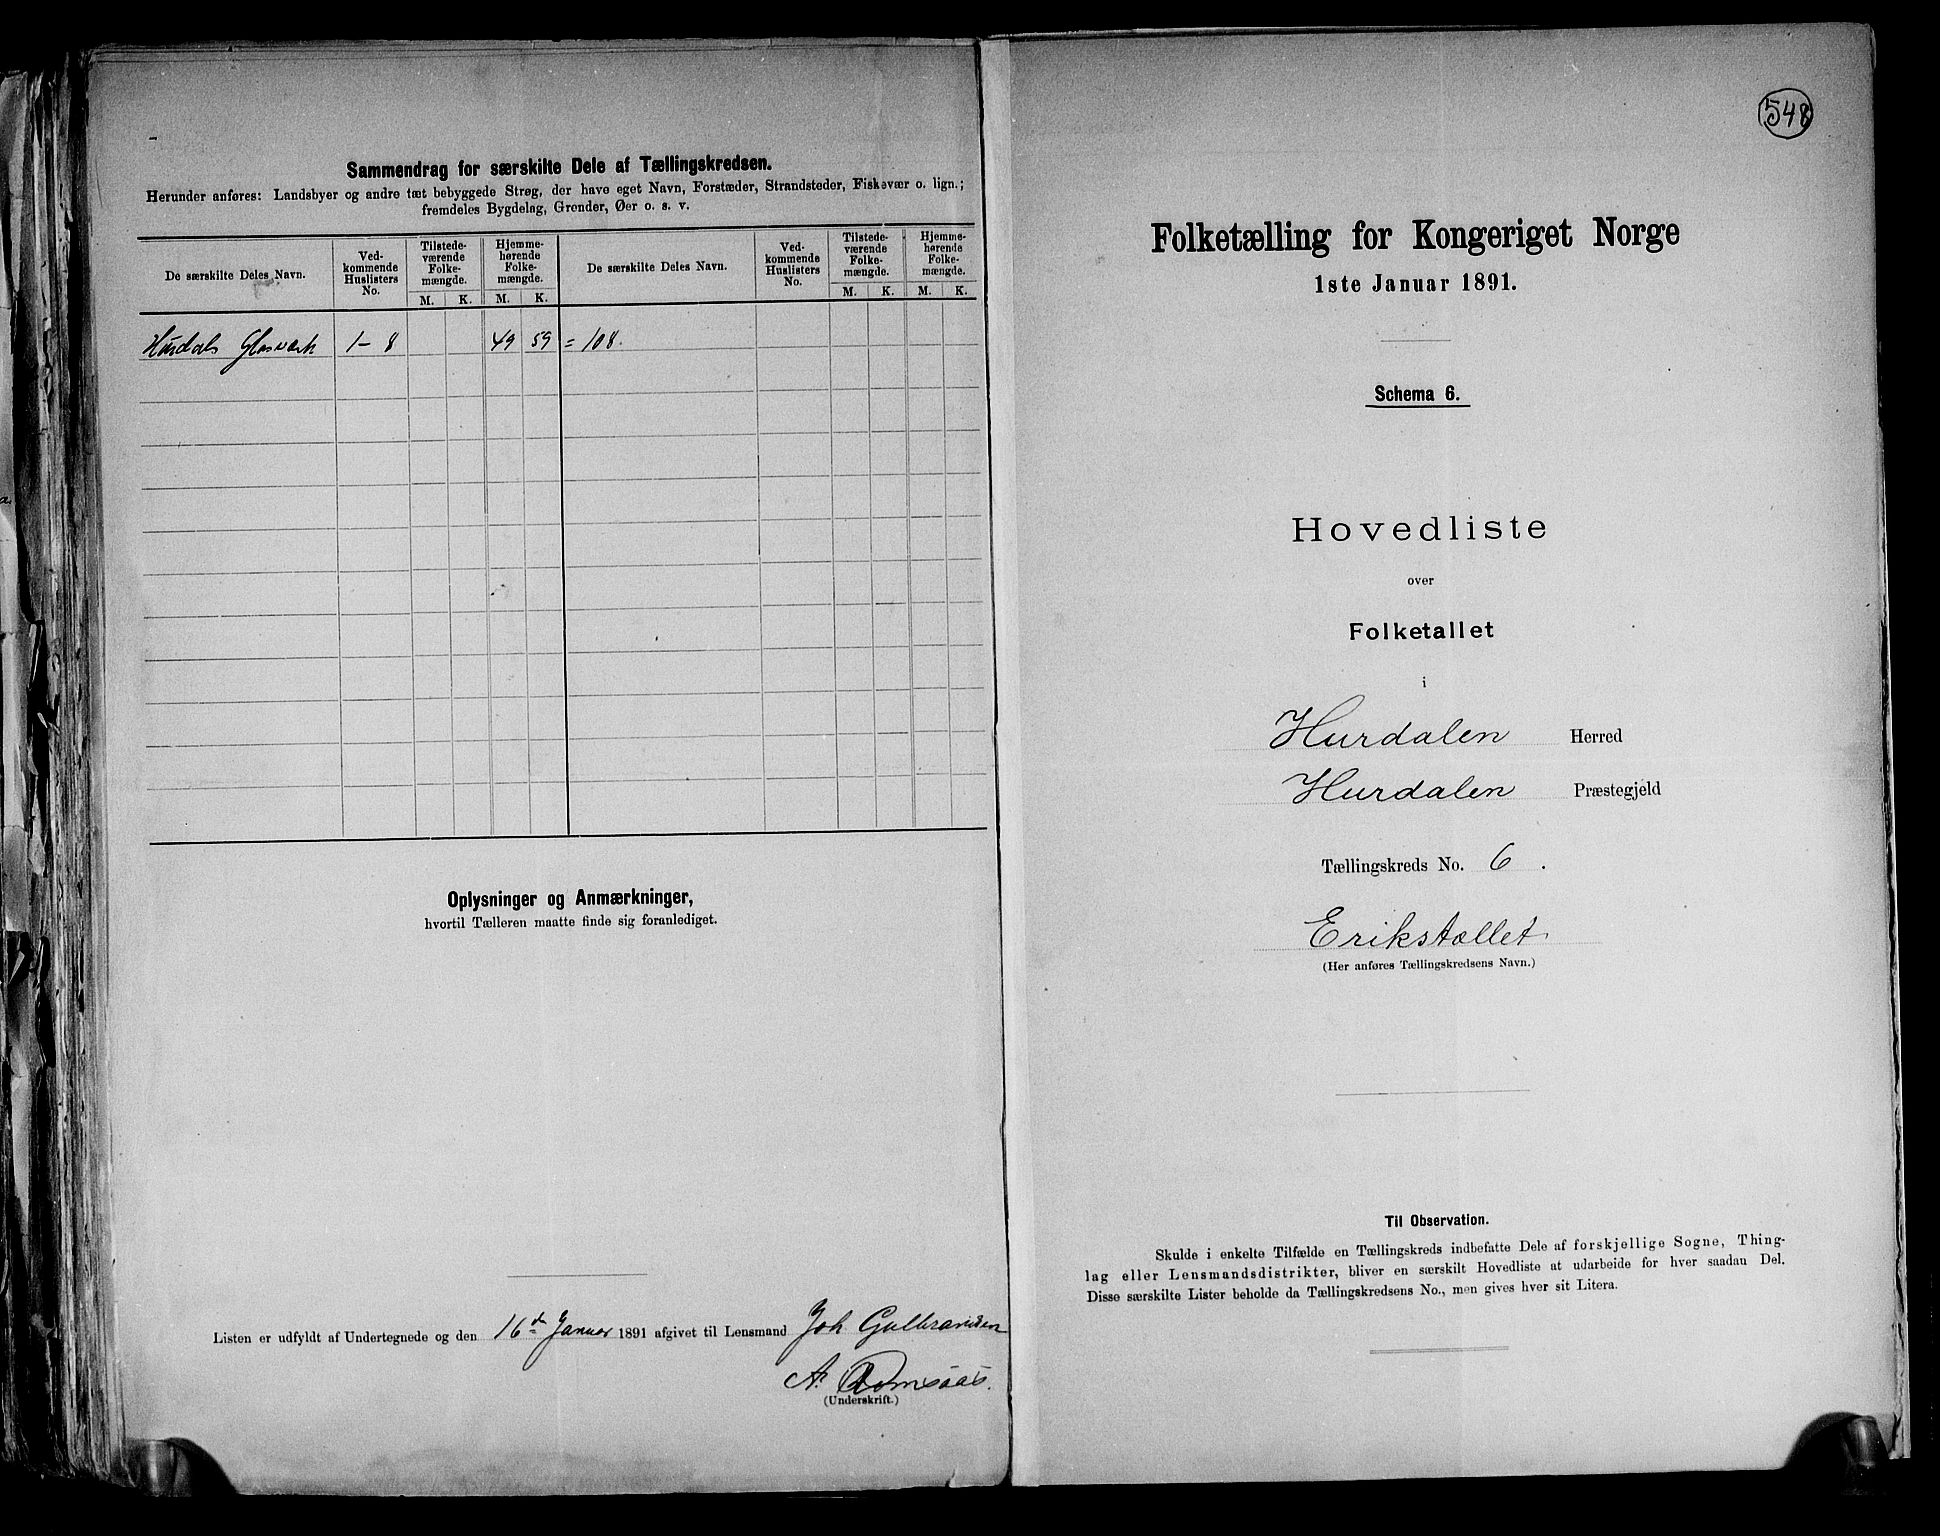 Sammendrag for særskilte Dele af Tællingskredsen.
Herunder anføres: Landsbyer og andre tæt bebyggede Strøg, der have eget Navn, Forstæder, Strandsteder, Fiskevær o. lign.;
fremdeles Bygdelag, Grender, Øer o. s. v.
De særskilte Deles Navn.
Ved-
kommende
Huslisters
No.
Tilstede-
værende
Folke-
mængde.
Hjemme-
hørende
Folke-
mængde.
De særskilte Deles Navn.
Ved-
kommende
Huslisters
No.
Tilstede-
værende
Folke-
mængde.
Hjemme-
hørende
Folke-
mængde.
M. K. M. K. M. K. M. K.
Hurdals Glasværk 1-8 49 59 = 108.
Oplysninger og Anmærkninger,
hvortil Tælleren maatte finde sig foranlediget.
Listen er udfyldt af Undertegnede og den 16de Januar 1891 afgivet til Lensmand Joh Gulbrandsen
A.
(Underskrift.)
548
Folketælling for Kongeriget Norge
1ste Januar 1891.
Schema 6.
Hovedliste
over
Folketallet
i
Hurdalen Herred
Hurdalen Præstegjeld
Tællingskreds No. 6.
Erikstællet
(Her anføres Tællingskredsens Navn.)
Til Observation.
Skulde i enkelte Tilfælde en Tællingskreds indbefatte Dele af forskjellige Sogne, Thing-
lag eller Lensmandsdistrikter, bliver en særskilt Hovedliste at udarbeide for hver saadan Del.
Disse særskilte Lister beholde da Tællingskredsens No., men gives hver sit Litera.